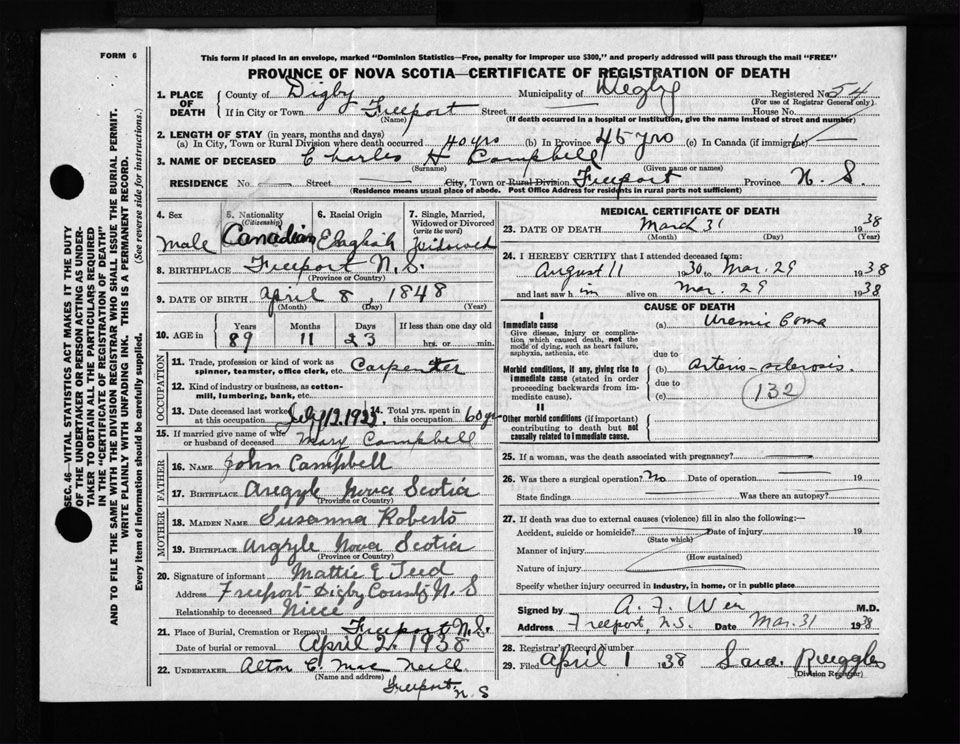 FORM 6
This form if placed in an envelope, marked "Dominion Statistics—Free, penalty for improper use $300," and properly addressed will pass through the mail "FREE"
PROVINCE OF NOVA SCOTIA—CERTIFICATE OF REGISTRATION OF DEATH
SEC. 46—VITAL STATISTICS ACT MAKES IT THE DUTY
OF THE UNDERTAKER OR PERSON ACTING AS UNDER-
TAKER TO OBTAIN ALL THE PARTICULARS REQUIRED
IN THE "CERTIFICATE OF REGISTRATION OF DEATH"
AND TO FILE THE SAME WITH THE DIVISION REGISTRAR WHO SHALL ISSUE THE BURIAL PERMIT.
WRITE PLAINLY WITH UNFADING INK. THIS IS A PERMANENT RECORD.
Every item of information should be carefully supplied. (See reverse side for instructions.)
1. PLACE OF DEATH County of Digby Municipality of Digby Registered No. 54
(For use of Registrar General only)
If in City or Town Freeport Street House No.
(Name) (If death occurred in a hospital or institution, give the name instead of street and number)
2. LENGTH OF STAY (in years, months and days)
(a) In City, Town or Rural Division where death occurred 40 yrs (b) In Province 45 yrs (c) In Canada (if immigrant)
3. NAME OF DECEASED Charles H Campbell
(Surname) (Given name or names)
RESIDENCE No. Street City, Town or Rural Division Freeport Province N. S.
(Residence means usual place of abode. Post Office Address for residents in rural parts not sufficient)
4. Sex 5. Nationality (Citizenship) 6. Racial Origin 7. Single, Married, Widowed or Divorced (write the word)
Male Canadian English Widowed
8. BIRTHPLACE Freeport N.S.
(Province or Country)
9. DATE OF BIRTH April 8, 1848
(Month) (Day) (Year)
10. AGE in Years Months Days If less than one day old
89 11 23 hrs. or min.
OCCUPATION
11. Trade, profession or kind of work as spinner, teamster, office clerk, etc. Carpenter
12. Kind of industry or business, as cotton-mill, lumbering, bank, etc.
13. Date deceased last worked at this occupation July 14. Total yrs. spent in this occupation 60 yrs
15. If married give name of wife or husband of deceased Mary Campbell
FATHER
16. NAME John Campbell
17. BIRTHPLACE Argyl Nova Scotia
(Province or Country)
MOTHER
18. MAIDEN NAME Susanna Roberts
19. BIRTHPLACE Argyle Nova Scotia
(Province or Country)
20. Signature of informant Mattie E Teed
Address Freeport Digby County N. S
Relationship to deceased Niece
21. Place of Burial, Cremation or Removal Freeport N.S.
Date of burial or removal April 2, 1938
22. UNDERTAKER Alton C. Mac Neill
(Name and address)
Freeport N. S
MEDICAL CERTIFICATE OF DEATH
23. DATE OF DEATH March 31 1938
(Month) (Day) (Year)
24. I HEREBY CERTIFY that I attended deceased from:
August 11 1930 to Mar. 29 1938
and last saw him alive on Mar. 29 1938
CAUSE OF DEATH
I
Immediate cause (a) Uremic Coma
Give disease, injury or complication, which caused death, not the mode of dying, such as heart failure, asphyxia, asthenia, etc
due to
Morbid conditions, if any, giving rise to immediate cause (stated in order proceeding backwards from immediate cause). (b) Arterio-sclerosis.
due to
(c) 132
II
Other morbid conditions (if important) contributing to death but not causally related to immediate cause.
25. If a woman, was the death associated with pregnancy?
26. Was there a surgical operation? No Date of operation 19
State findings Was there an autopsy?
27. If death was due to external causes (violence) fill in also the following:—
Accident, suicide or homicide? Date of injury 19
(State which)
Manner of injury
(How sustained)
Nature of injury
Specify whether injury occurred in industry, in home, or in public place
Signed by A. F. Weir M.D.
Address Freeport, N.S. Date Mar. 31 1938
28. Registrar's Record Number
29. Filed April 1 1938 Ruggles
(Division Registrar)